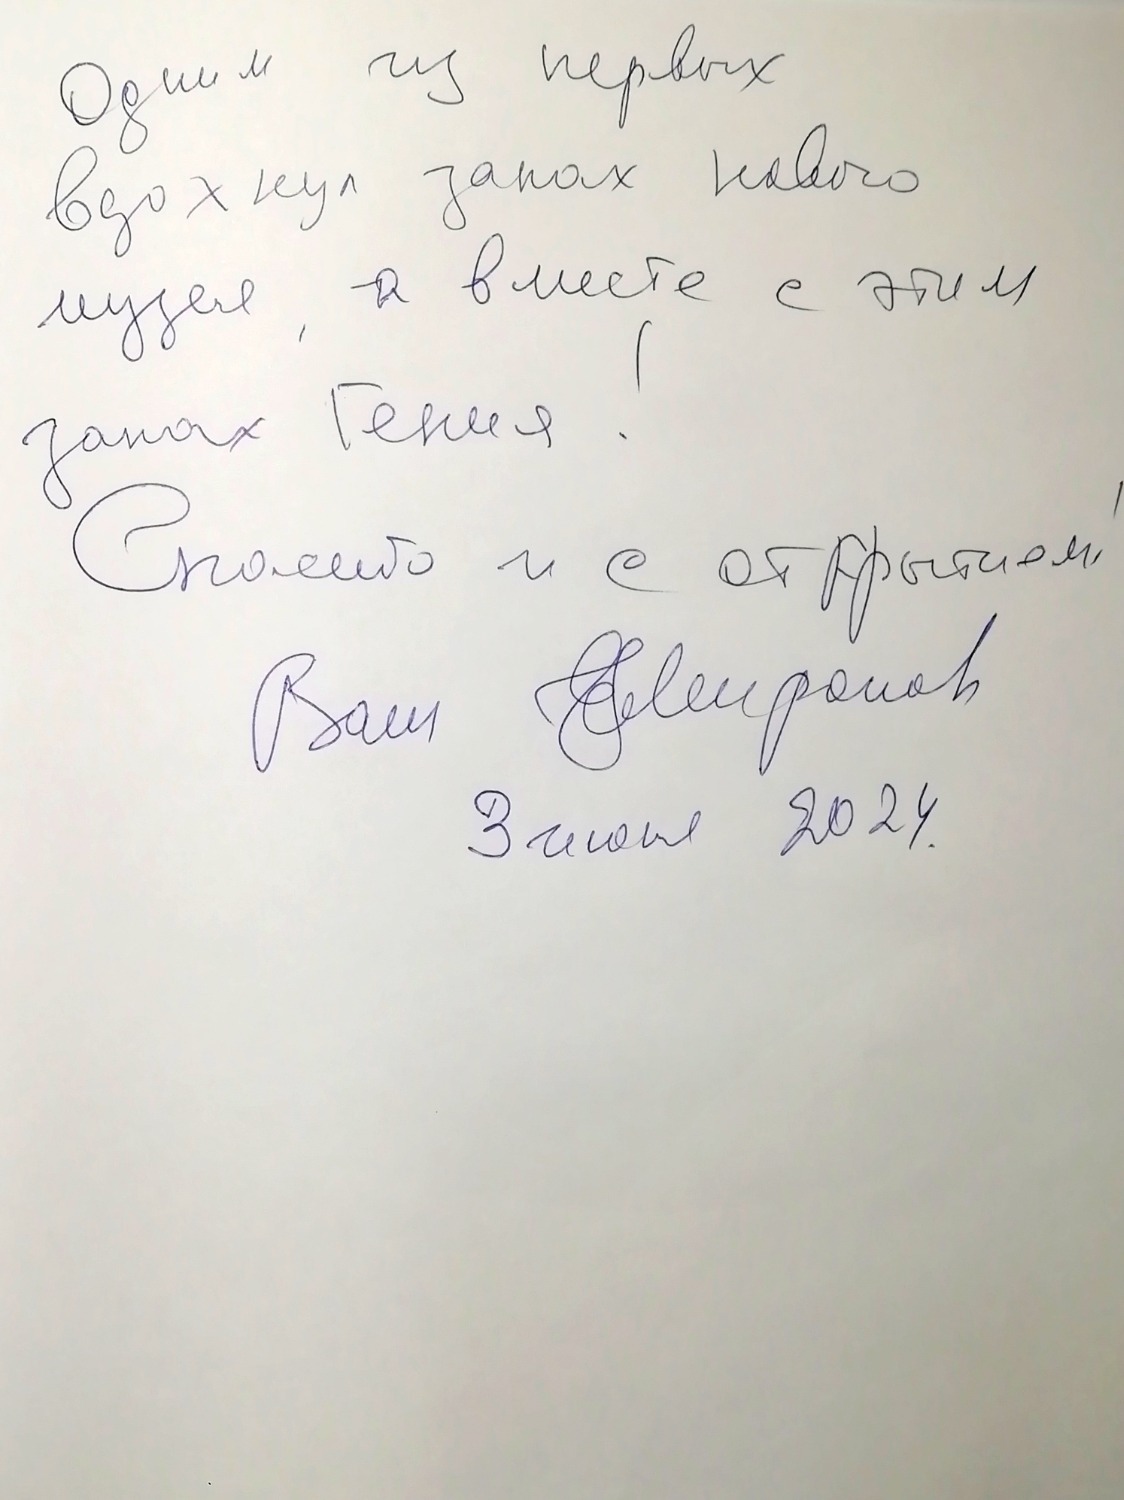 Одним из первых
вдохнул запах нового
музея, а вместе с этим
запах Гения!
Спасибо и с открытием!
Ваш
3 июня 2024.